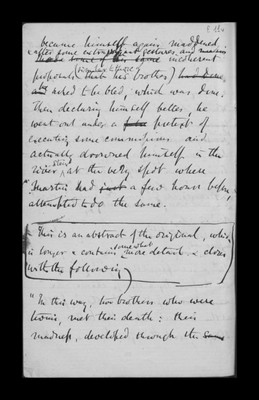 became himself again maddened
& after some extravagant gestures and
incoherent
proposals (similar to those
that his brother)
he asked to be bled, which was done.
Then declaring himself better, he
went out under a pretext of
executing some commissions and
actually drowned himself in the
river Stein, at the very spot where
Martin had a few hours before
attempted to do the same.
This is an abstract of the original, which
is longer & contains somewhat more detail & closes
with the following
"In this way, two brothers who were
twins, met their death: their
madness, developed through the same